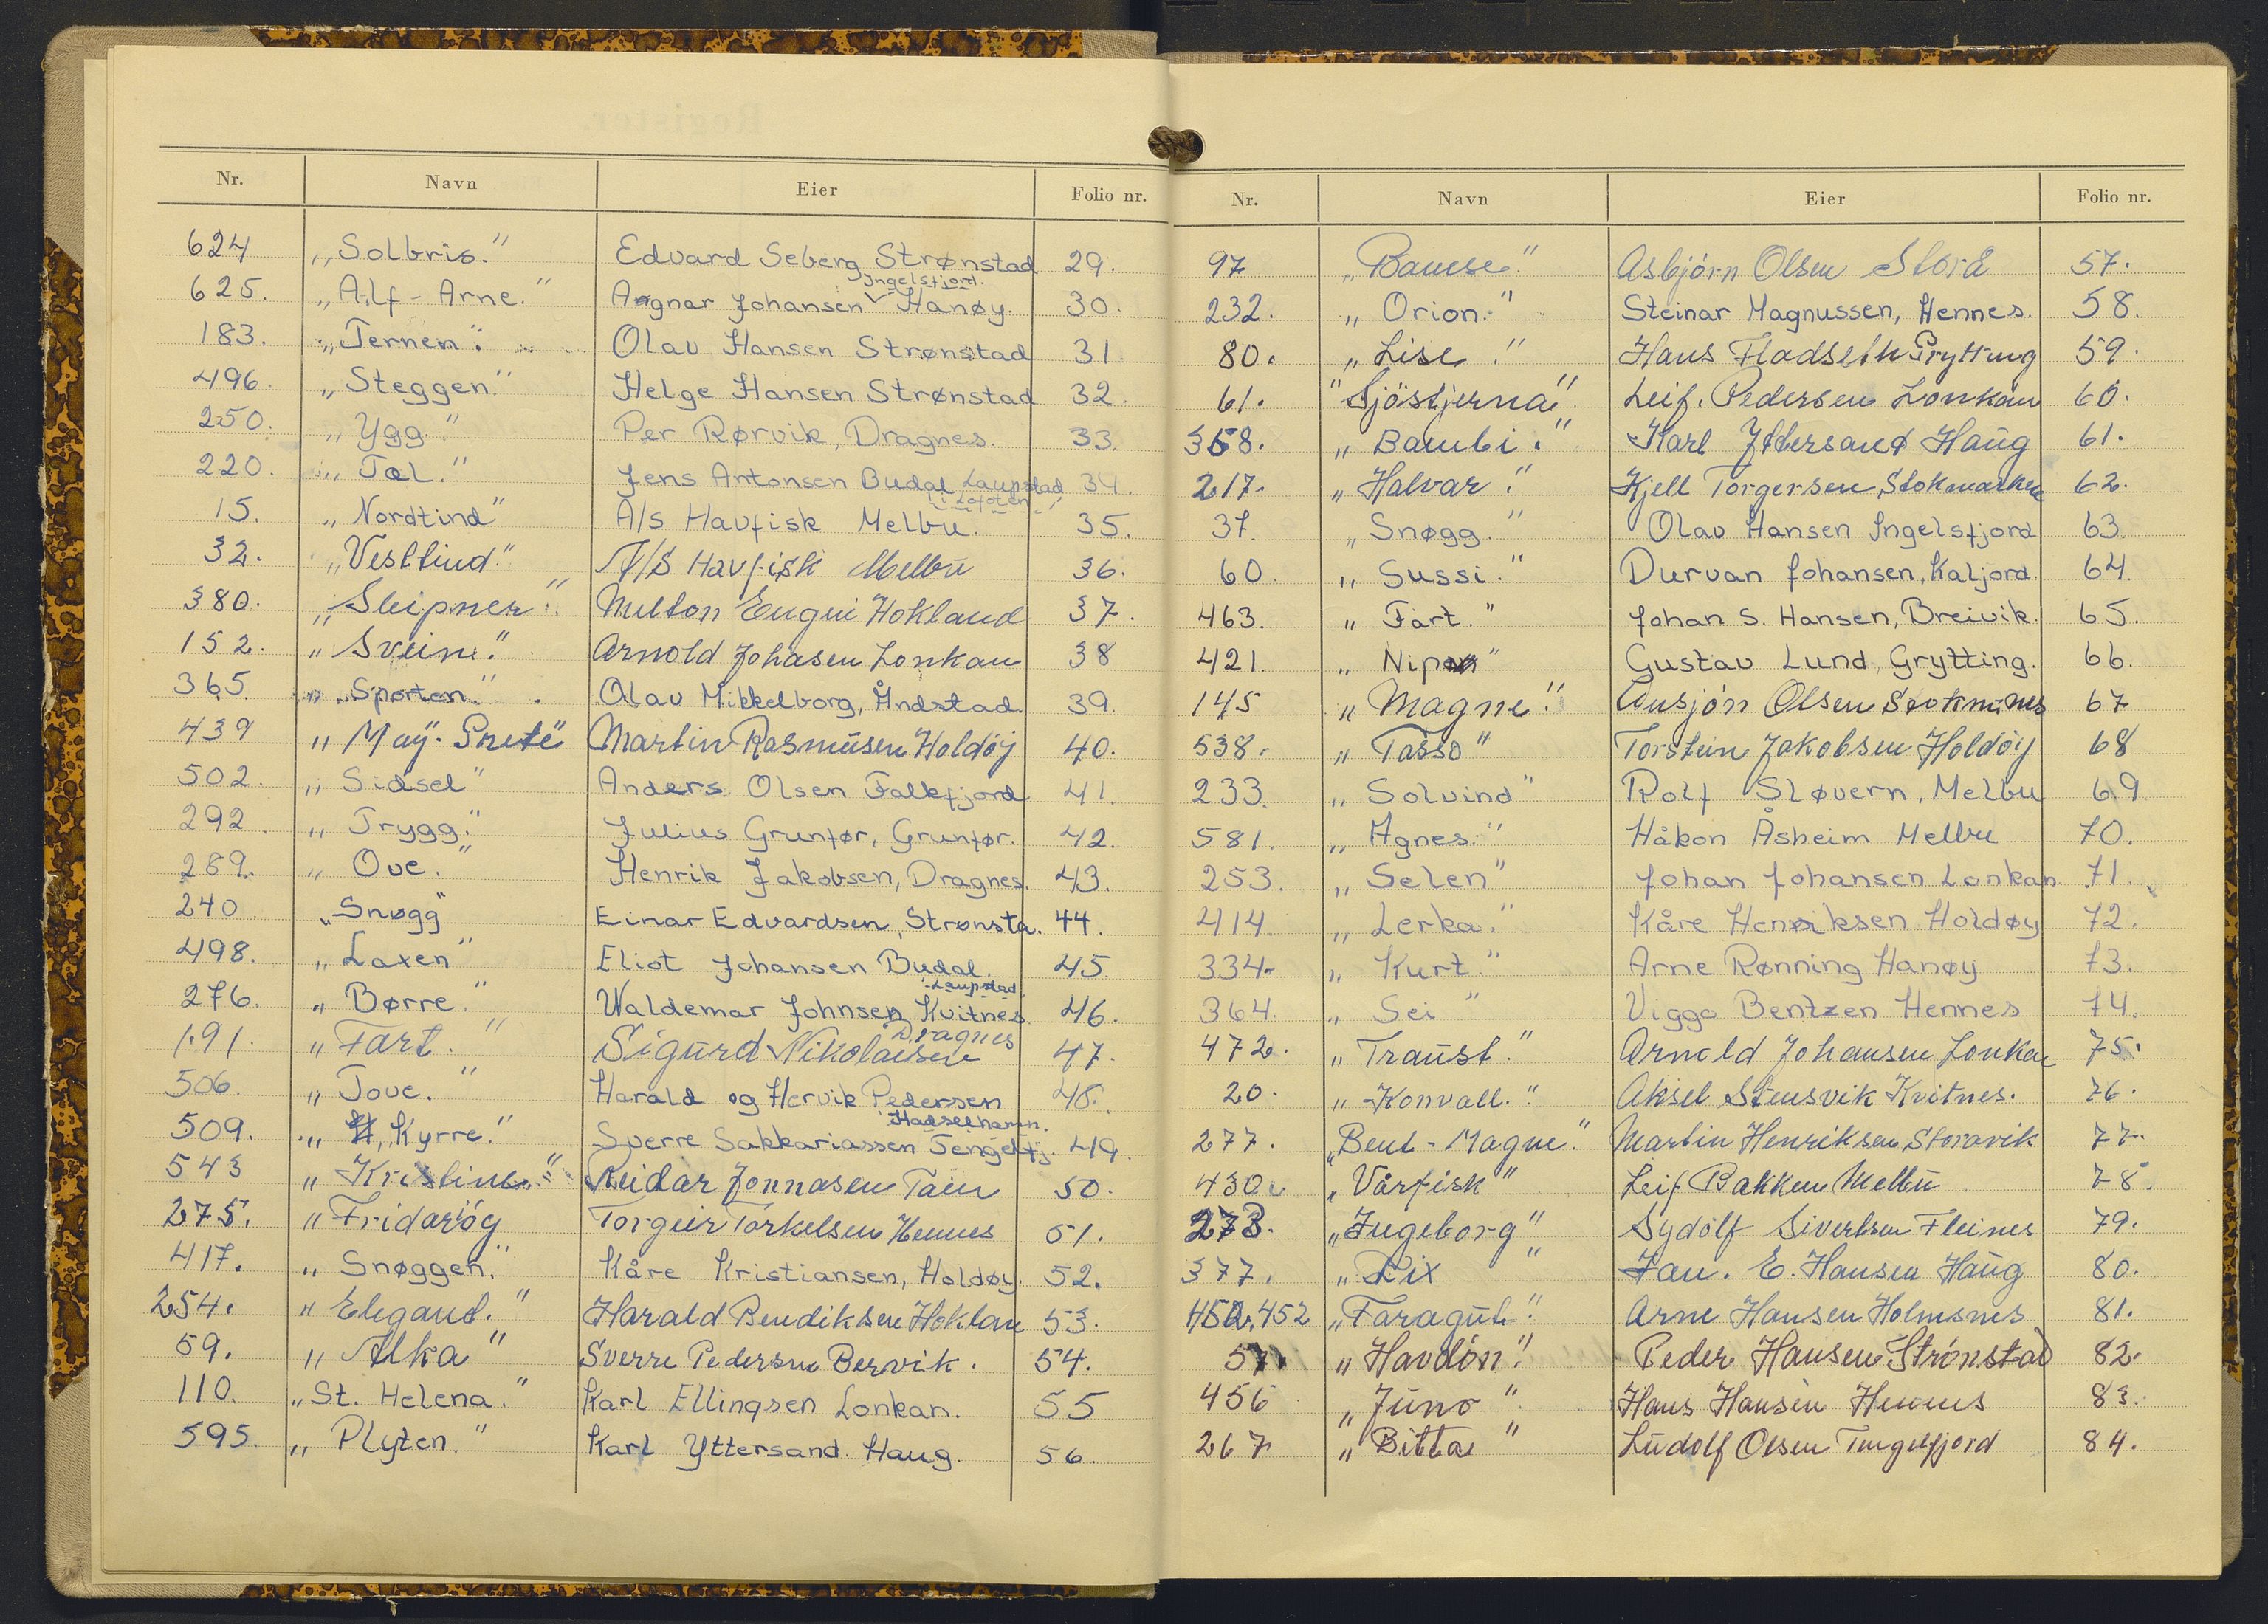 Nr. Navn Eier Folio nr.
624 „Solbris." Edvard Seberg Strønstad 29.
Ingelsfjord.
625. „Alf-Arne." Agnar Johansen Hanøy. 30.
183. „Ternen". Olav Hansen Strønstad 31.
496. „Steggen." Helge Hansen Strønstad 32.
250. „Ygg." Per Rørvik, Dragnes. 33.
220. „Tæl." Jens Antonsen Budal Laupstad 34.
i Lofoten
15. „Nordtind" A/s Havfisk Melbu. 35.
32. „Vesttind." A/S Havfisk Melbu 36.
380. „Sleipner". Milton Hokland 37.
152. „Svein". Arnold Johasen Lonkan 38
365. „Sporten." Olav Mikkelborg, Åndstad. 39.
439 „May-Grete" Martin Rasmusen Holdøy 40.
502. „Sidsel" Anders Olsen Falkfjord 41.
292. „Trygg." Julius Grunfør, Grunfør. 42.
289. „Ove." Henrik Jakobsen, Dragnes. 43.
240 „Snøgg" Einar Edvardsen, Strønsta. 44.
498. „Laxen" Eliot Johansen Budal. 45.
Laupstad
276. „Børre." Waldemar Johnsen Kvitnes 46.
Dragnes
191. „Fart." Sigurd Nikolaisen 47.
506. „Tove." Harald og Hervik Pedersen 48.
Hadselhamn.
509. „Kyrre." Sverre Sakkariassen Tengelfj. 49.
543 „Kristine" Reidar Jonnasen Taen 50.
275. „Fridarøy Torgeir Torkelsen Hennes 51.
417. „Snøggen." Kåre Kristiansen, Holdøy. 52.
254. „Elegant." Harald Bendiksen Hoklan 53.
59. „Alka" Sverre Pedersen Bervik. 54.
110. „St. Helena." Karl Ellingsen Lonkan. 55
595. „Plyten." Karl Yttersand Haug. 56.
Nr. Navn Eier Folio nr.
97 „Bamse." Asbjørn Olsen Storå 57.
232. „Orion." Steinar Magnussen, Hennes. 58.
80. „Lise." Hans Fladseth Grytting 59.
61. "Sjöstjerna". Leif. Pedersen Lonkan 60.
358. „Bambi." Karl Yttersand Haug 61.
217. „Halvar." Kjell Torgersen, Stokmarken 62.
37. „Snøgg." Olav Hansen Ingelsfjord 63.
60. „Sussi." Durvan Johansen, Kaljord. 64.
463. „Fart." Johan S. Hansen, Breivik. 65.
421. „Nipen" Gustav Lund, Grytting. 66.
145 „Magne". Olsen 67
538. „Tasso" Torstein Jakobsen Holdøy 68
233. „Solvind" Rolf Sløvern, Melbu 69.
581. „Agnes." Håkon Åsheim Melbu 70.
253. „Selen" Johan Johansen Lonkan 71.
414. „Lerka." Kåre Henriksen Holdøy 72.
334. „Kurt." Arne Rønning Hanøy 73.
364. „Sei" Viggo Bentzen Hennes 74.
472. „Traust." Arnold Johansen Lonkan 75.
20. „Konvall." Aksel Stensvik Kvitnes. 76.
277. „Bent-Magne." Martin Henriksen Storavik 77.
430. „Vårfisk" Leif Bakken Melbu 78.
273. „Ingeborg" Sydolf Sivertsen Fleines 79.
377. „Rix" Jan. E. Hansen Haug 80.
452 „Faragut". Arne Hansen Holmsnes 81.
57. „Havdön". Peder Hansen Strønstad 82.
456 „Juno" Hans Hansen Hennes 83.
267 „Bitta" Ludolf Olsen Tengelfjord 84.